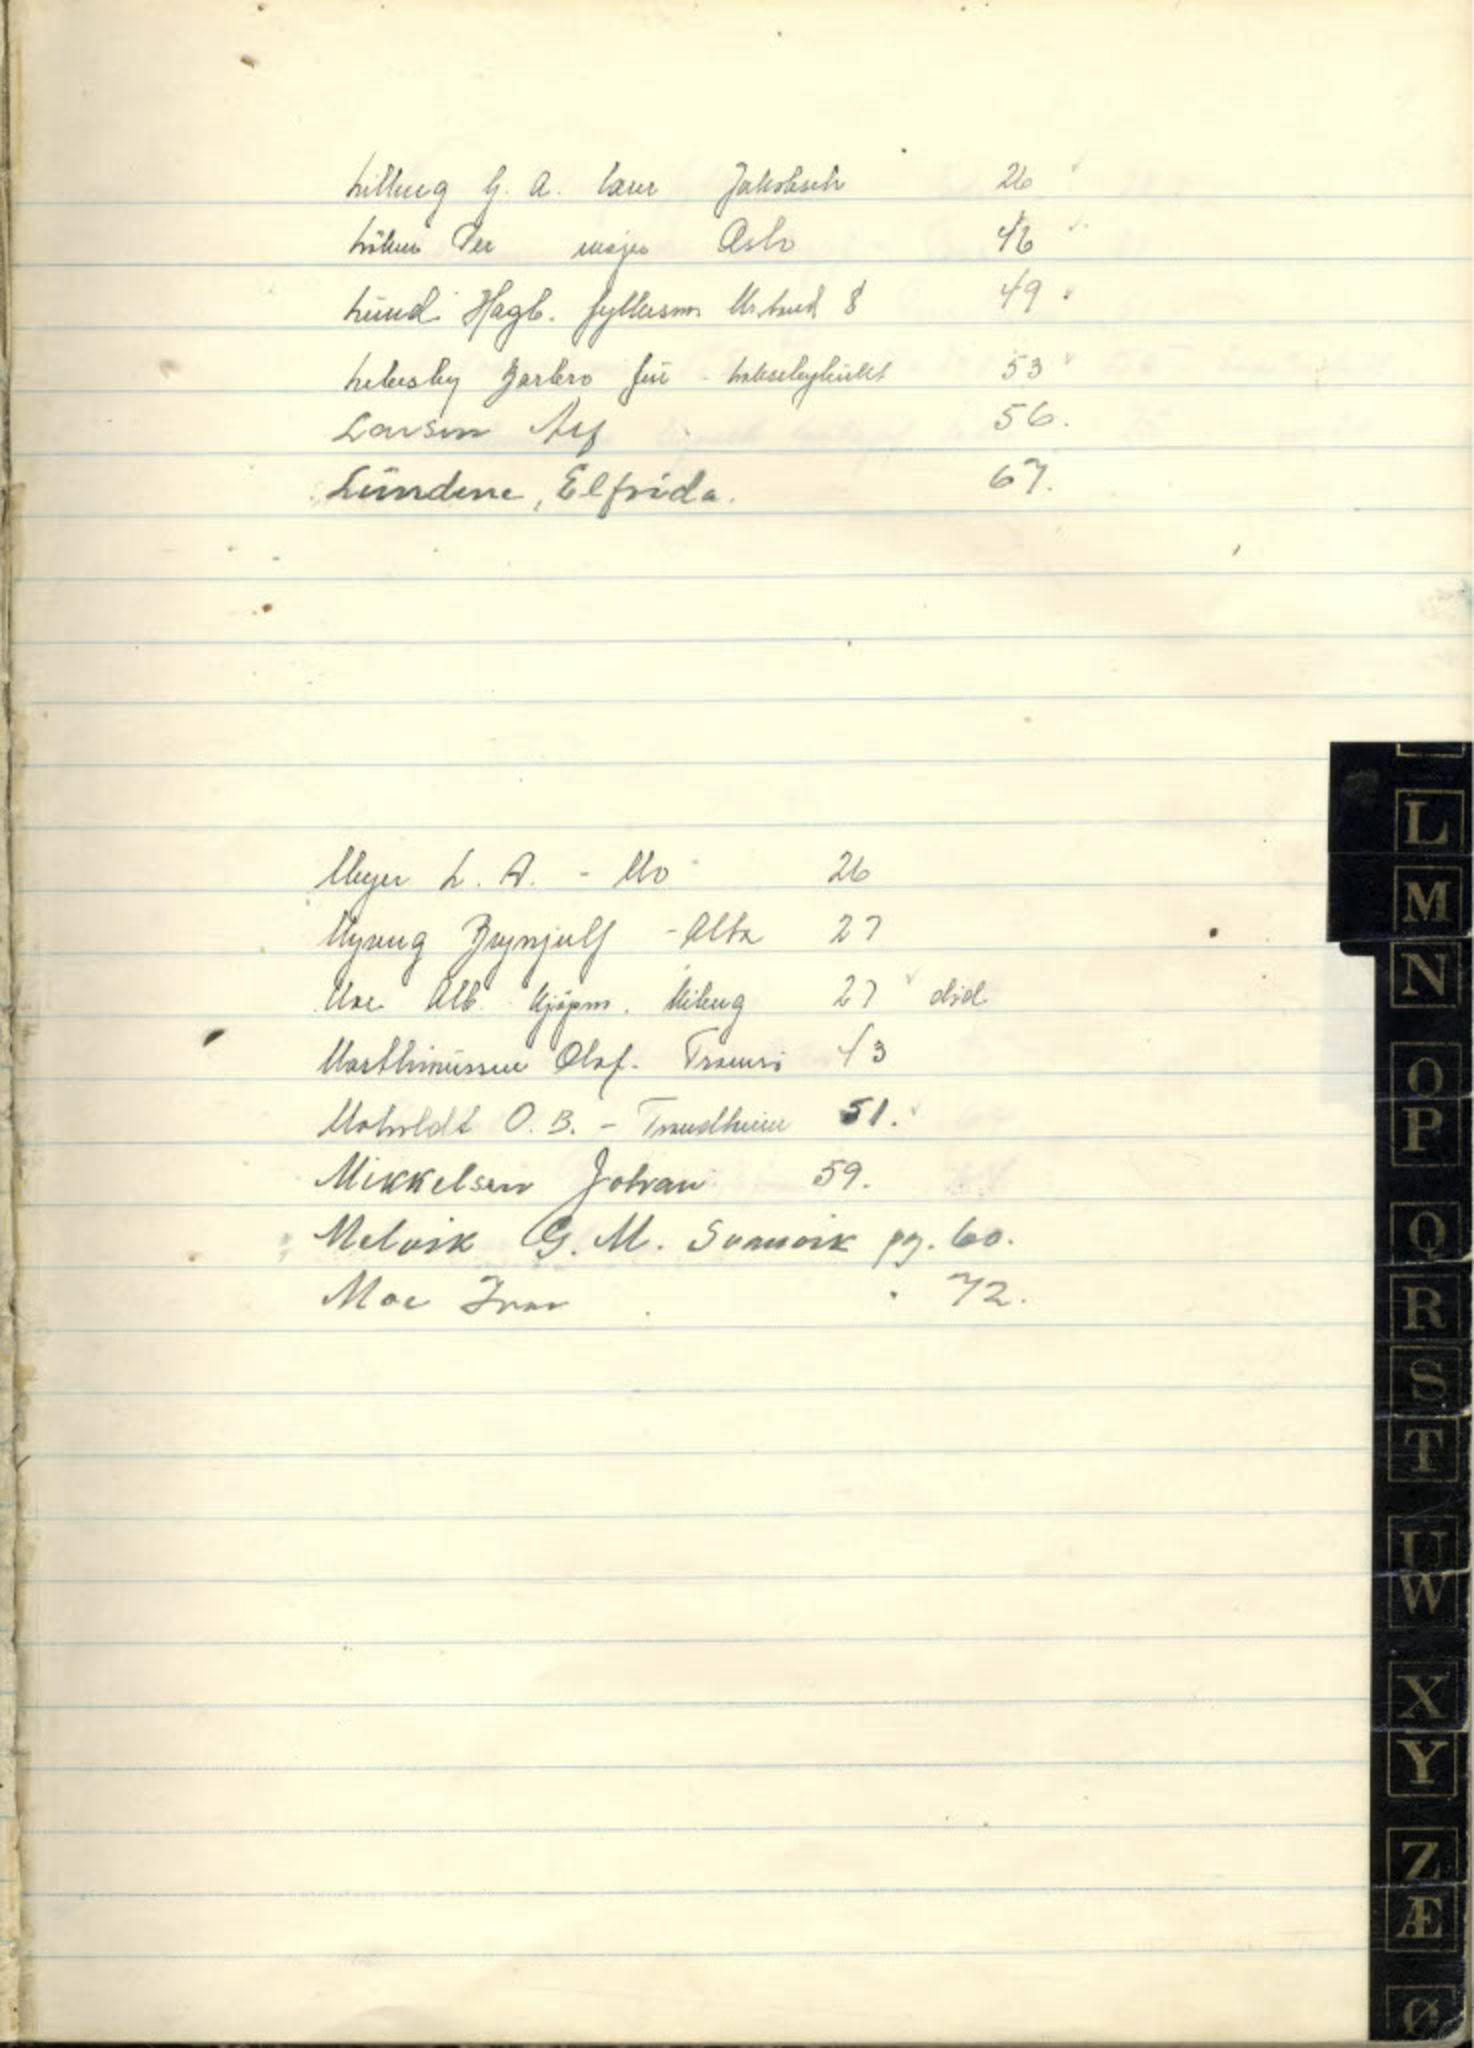 Lilleng G. A. lærer Jakobselv 26
Per major Oslo 46
Lund Hagb. 8 49
Lebesby Barbro 53
Larsen Alf 56.
Lündene, Elfrida. 67.
Meyer L. A. - Mo 26
Myreng Brynjulf - Alta 27
Moe Alb. kjøpm. Kiberg 27 død
Marthinüssen Olaf. Tromsø 43
Moholdt O. B. - Trondheim 51.
Mikkelsen Johan 59.
Melvik G. M. Svanvik pg. 60.
Moe Ivar 72.
L
M
N
O
P
Q
R
S
T
U
W
X
Y
Z
Æ
Ø